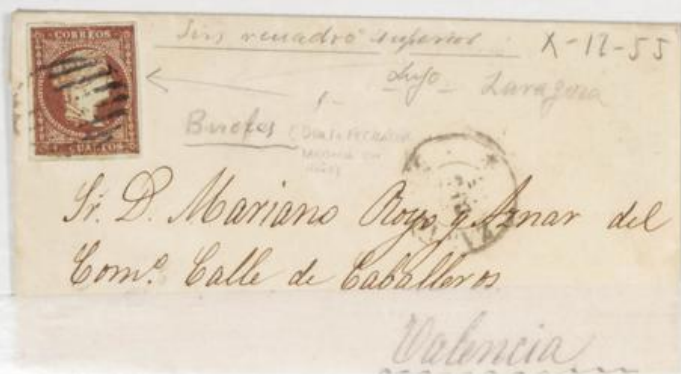 CORREOS
Sin recuadro superior X-12-55
Lujo Zaragoza
CUARTOS
Sr. D. Mariano Royo y Aznar del
Com.º Calle de Caballeros
Valencia